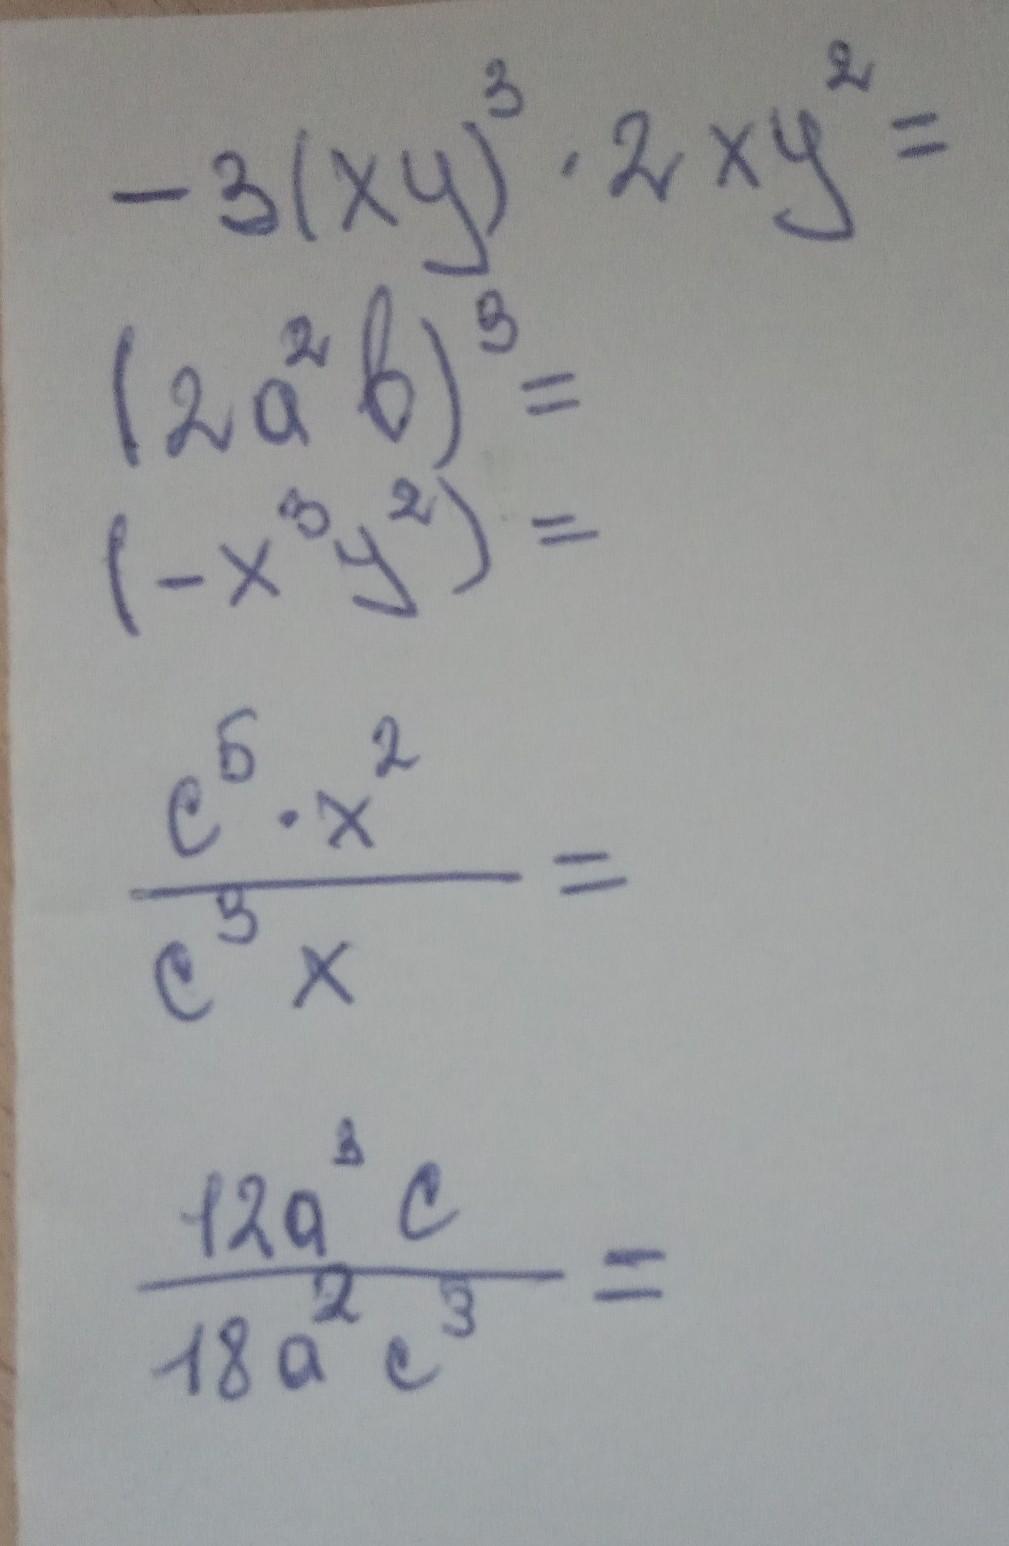 -3(xy)³ · 2xy² =
(2a²b)³ =
(-x³y²) =
c⁵ · x²
c³ x
=
12a³ c
18a² c³
=